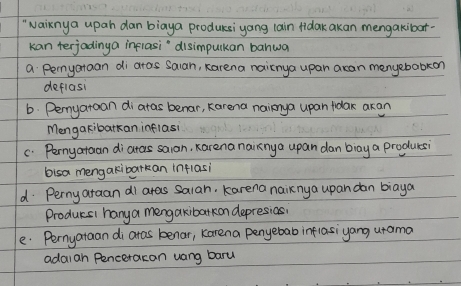 "Naiknya upah dan biaya produksi yang lain tidak akan mengakibat-
kan terjadinya inflasi" disimpulkan bahwa
a. Pernyataan di atas salah, karena naiknya upah akan menyebabkan
deflasi
b. Pernyataan di atas benar, karena naiknya upah tidak akan
Mengakibatkan inflasi
c. Pernyataan di atas salah, karena naiknya upah dan biaya produksi
bisa mengakibatkan inflasi
d. Pernyataan di atas salah, karena naiknya upah dan biaya
Produksi hanya mengakibatkan depresiasi
e. Pernyataan di atas benar, karena penyebab inflasi yang utama
adalah Pencetakan uang baru